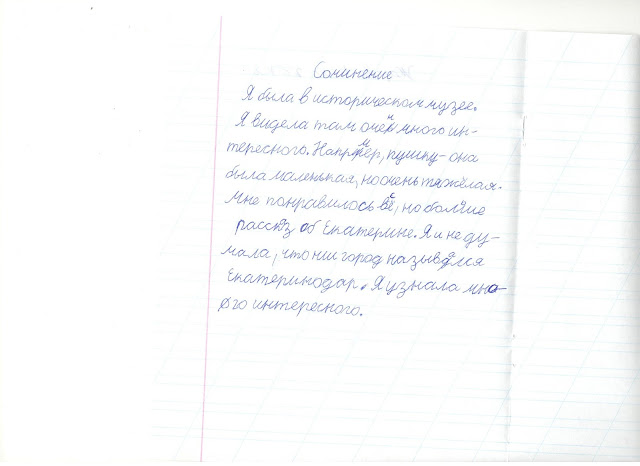 Сочинение
Я была в историческом музее.
Я видела там очень много ин-
тересного. Например, пушку - она
была маленькая, но очень тяжёлая.
Мне понравилось всё, но больше
рассказ об Екатерине. Я и не ду-
мала, что наш город назывался
Екатеринодар. Я узнала мно-
го интересного.